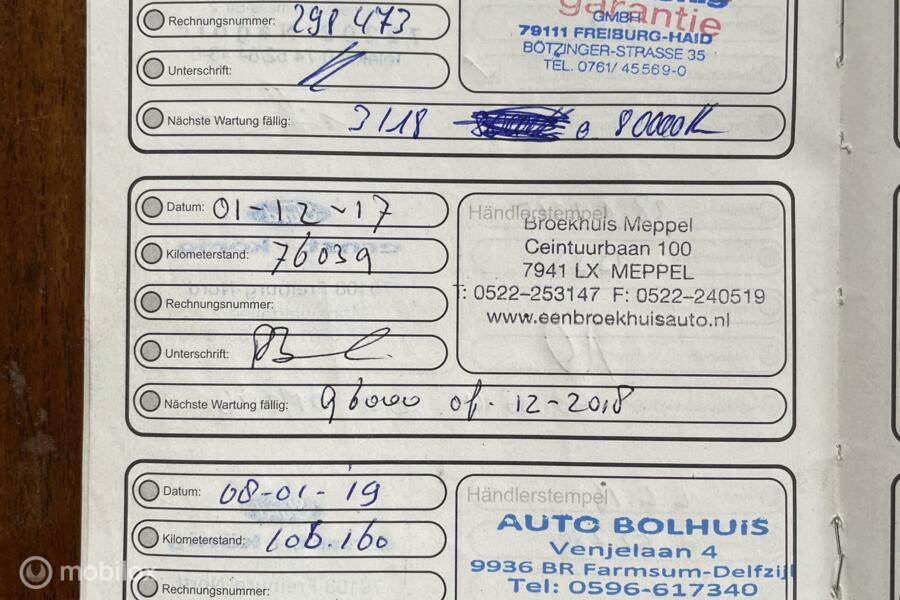 Rechnungsnummer: 298 473
garantie
GMBH
79111 FREIBURG-HAID
BÖTZINGER-STRASSE 35
TEL. 0761/ 45569-0
Unterschrift:
Nächste Wartung fällig: 3/18 80000K
Datum: 01-12-17
Kilometerstand: 76039
Rechnungsnummer:
Unterschrift:
Nächste Wartung fällig: 96000 of. 12-2018
Händlerstempel
Broekhuis Meppel
Ceintuurbaan 100
7941 LX MEPPEL
T: 0522-253147 F: 0522-240519
www.eenbroekhuisauto.nl
Datum: 08-01-19
Kilometerstand: 106.160
Rechnungsnummer:
Händlerstempel
AUTO BOLHUiS
Venjelaan 4
9936 BR Farmsum-Delfzijl
Tel: 0596-617340
mobilox